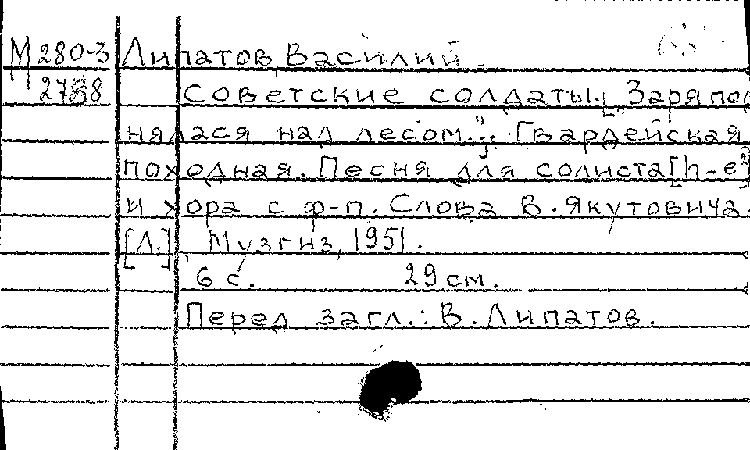 М 280-3 Липатов Василий.
2788 Советские солдаты. [„Заря под-
нялася над лесом..."]. Гвардейская
походная. Песня для солиста [h-e²]
и хора с ф-п. Слова В. Якутовича.
[Л.] Музгиз, 1951.
6 с. 29 см.
Перед загл.: В. Липатов.